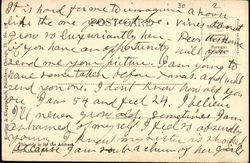 It is hard for me to imagine a house
like the one you describe. Vines do not
grow so luxuriantly here. Dear
if you have an opportunity will you
send me your picture. I am going to
have some taken before Xmas. and will
send you one. I don't know how old you
are. I am 54 and feel 24. I believe
I'll never grow old, sometimes I am
ashamed of myself I feel so absurdly
young. I know my sister is shocked
because I am such a chum of her